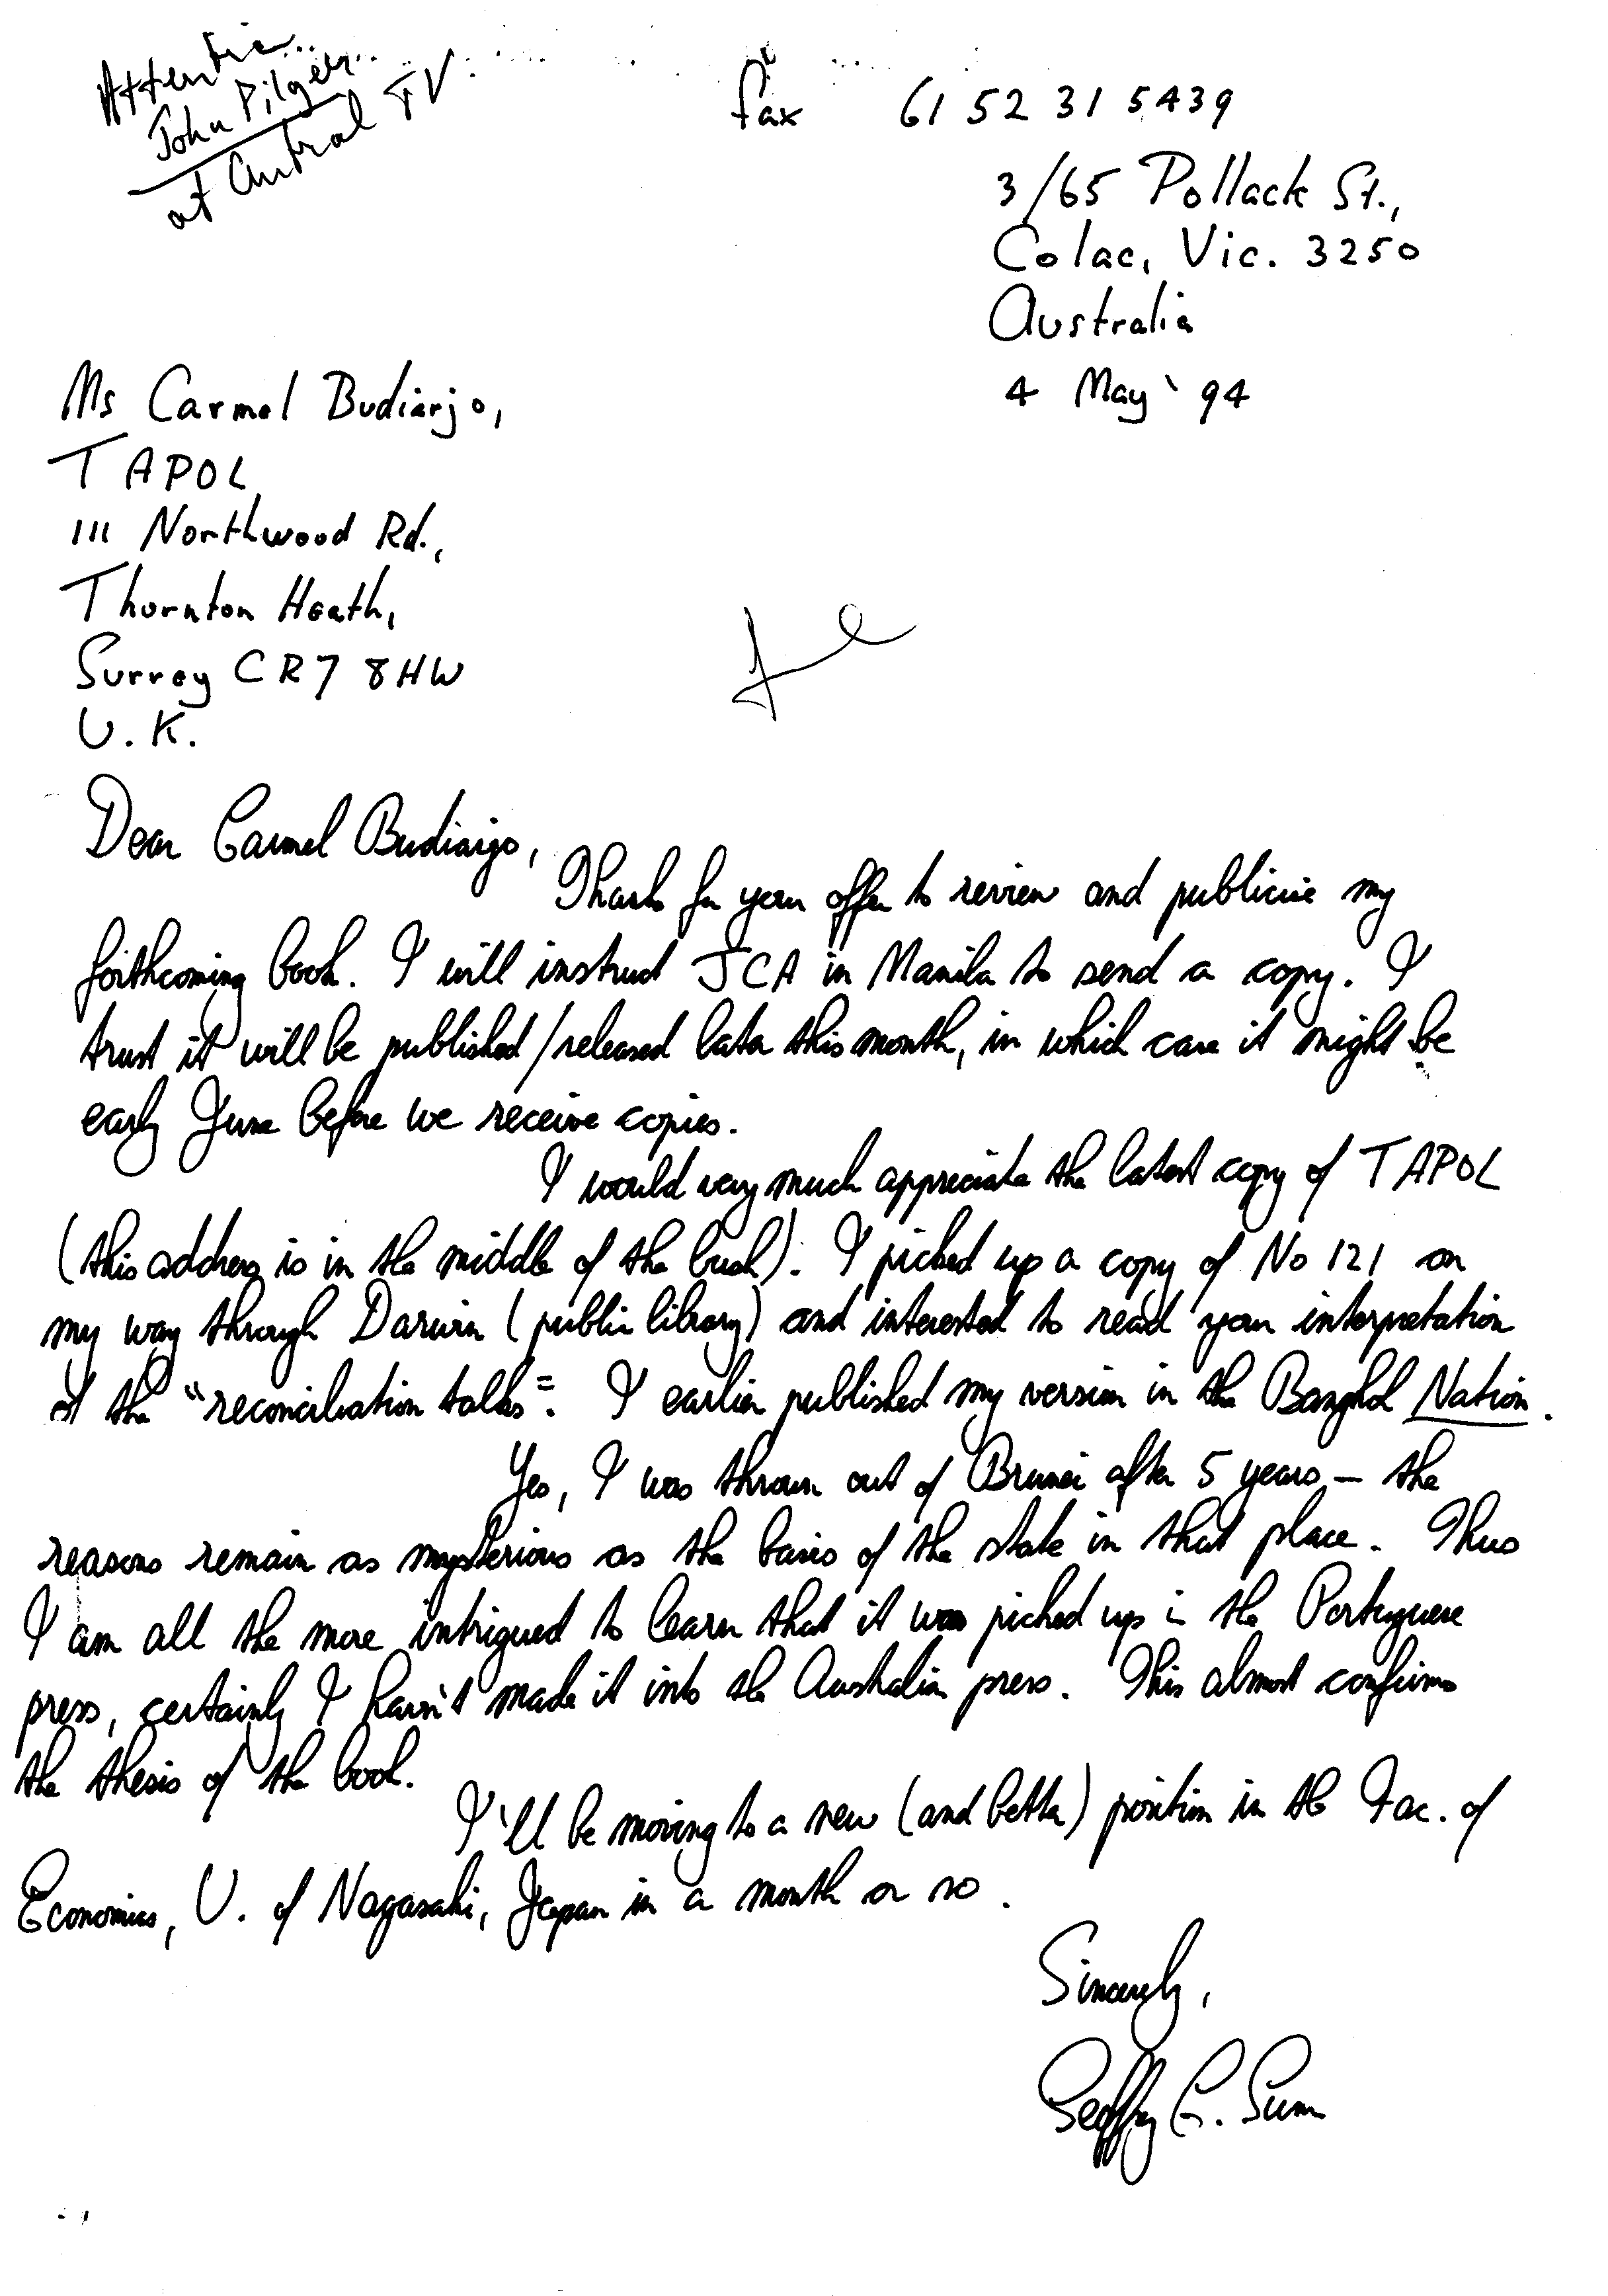 Attentio...
John Pilger
at Central TV
fax 61 52 31 5439
3/65 Pollack St.,
Colac, Vic. 3250
Australia
4 May '94
Ms Carmel Budiarjo,
TAPOL
111 Northwood Rd.,
Thornton Heath,
Surrey CR7 8HW
U.K.
Dear Carmel Budiarjo,
Thanks for your offer to review and publicise my
forthcoming book. I will instruct JCA in Manila to send a copy. I
trust it will be published/released later this month, in which case it might be
early June before we receive copies.
I would very much appreciate the latest copy of TAPOL
(this address is in the middle of the bush). I picked up a copy of No 121 on
my way through Darwin (public library) and interested to read your interpretation
of the "reconciliation talks". I earlier published my version in the Bangkok Nation.
Yes, I was thrown out of Brunei after 5 years - the
reasons remain as mysterious as the basis of the state in that place. Thus
I am all the more intrigued to learn that it was picked up in the Portuguese
press, certainly I haven't made it into the Australian press. This almost confirms
the thesis of the book.
I'll be moving to a new (and better) position in the Fac. of
Economics, U. of Nagasaki, Japan in a month or so.
Sincerely,
Geoffrey C. Gunn